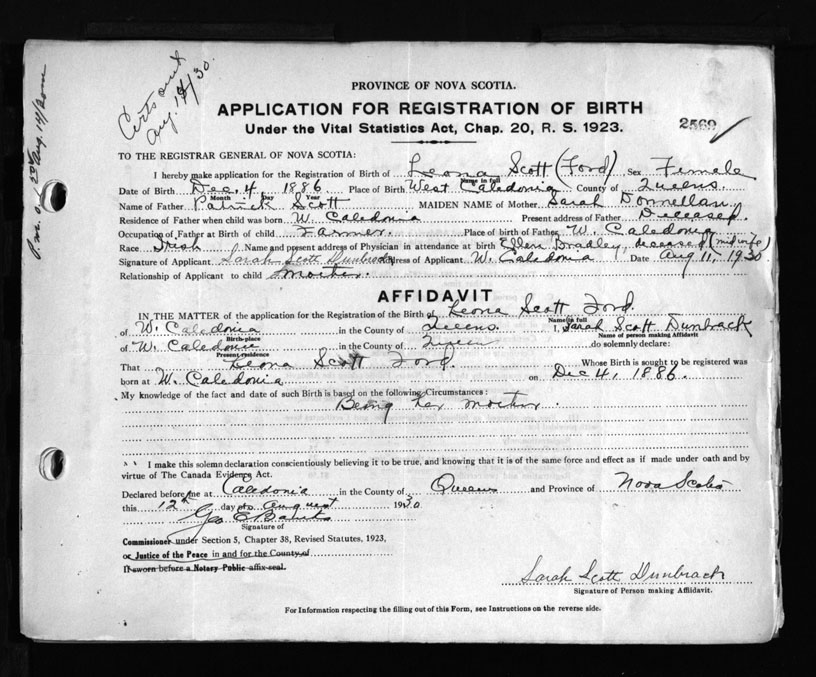 Certs out
Aug. 14/30.
PROVINCE OF NOVA SCOTIA.
APPLICATION FOR REGISTRATION OF BIRTH
Under the Vital Statistics Act, Chap. 20, R. S. 1923.
2569
TO THE REGISTRAR GENERAL OF NOVA SCOTIA:
I hereby make application for the Registration of Birth of Leona Scott (Ford) Sex Female
Name in full
Date of Birth Dec. 4, 1886 Place of Birth West Caledonia County of Queens.
Month Day Year
Name of Father Patrick Scott MAIDEN NAME of Mother Sarah Donnellan.
Residence of Father when child was born W. Caledonia Present address of Father Deceased.
Occupation of Father at Birth of child Farmer. Place of birth of Father W. Caledonia
Race Irish Name and present address of Physician in attendance at birth Ellen Bradley, deceased (midwife)
Signature of Applicant Sarah Scott Dunbrack Address of Applicant W. Caledonia Date Aug 11, 1930
Relationship of Applicant to child Mother.
AFFIDAVIT
IN THE MATTER of the application for the Registration of the Birth of Leona Scott Ford.
Name in full
of W. Caledonia in the County of Queens. I, Sarah Scott Dunbrack
Birth-place Name of person making Affidavit
of W. Caledonia in the County of Queens do solemnly declare:
Present residence
That Leona Scott Ford. Whose Birth is sought to be registered was
born at W. Caledonia on Dec 4, 1886.
My knowledge of the fact and date of such Birth is based on the following Circumstances:
Being her mother.
I make this solemn declaration conscientiously believing it to be true, and knowing that it is of the same force and effect as if made under oath and by
virtue of The Canada Evidence Act.
Declared before me at Caledonia in the County of Queens and Province of Nova Scotia
this 12th day of August 1930
Geo E
Signature of
Commissioner under Section 5, Chapter 38, Revised Statutes, 1923,
or Justice of the Peace in and for the County of
If sworn before a Notary Public affix seal.
Sarah Scott Dunbrack
Signature of Person making Affidavit.
For Information respecting the filling out of this Form, see Instructions on the reverse side.